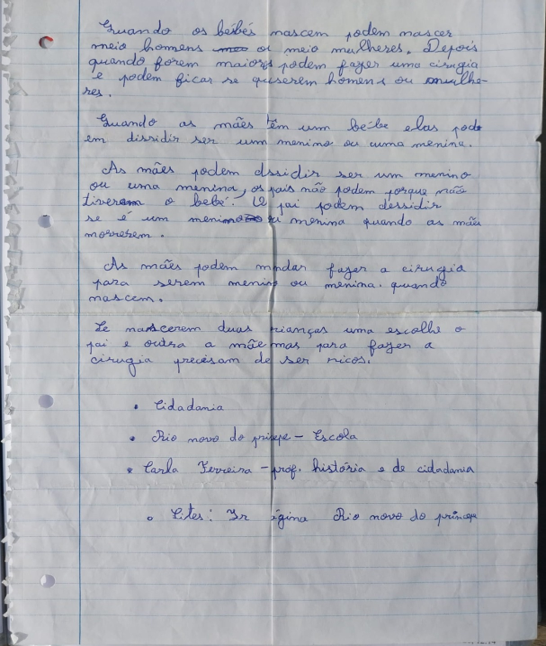 Quando os bebés nascem podem nascer
meio homens ou meio mulheres. Depois
quando forem maiores podem fazer uma cirugia
e podem ficar se quiserem homens ou mulhe-
res.
Quando as mães têm um bebé elas pode
em dissidir ser um menino ou uma menina.
As mães podem dssidir ser um menino
ou uma menina, os pais não podem porque não
tiveram o bebé. O pai podem dessidir
se é um menino ou menina quando as mãe
morrerem.
As mães podem mandar fazer a cirugia
para serem menino ou menina quando
nascem.
Se nascerem duas crianças uma escolhe o
pai e outra a mãe mas para fazer a
cirugia precisam de ser ricos.
• Cidadania
• Rio novo do principe - Escola
• Carla Ferreira - prof. história e de cidadania
• página Rio novo do principe